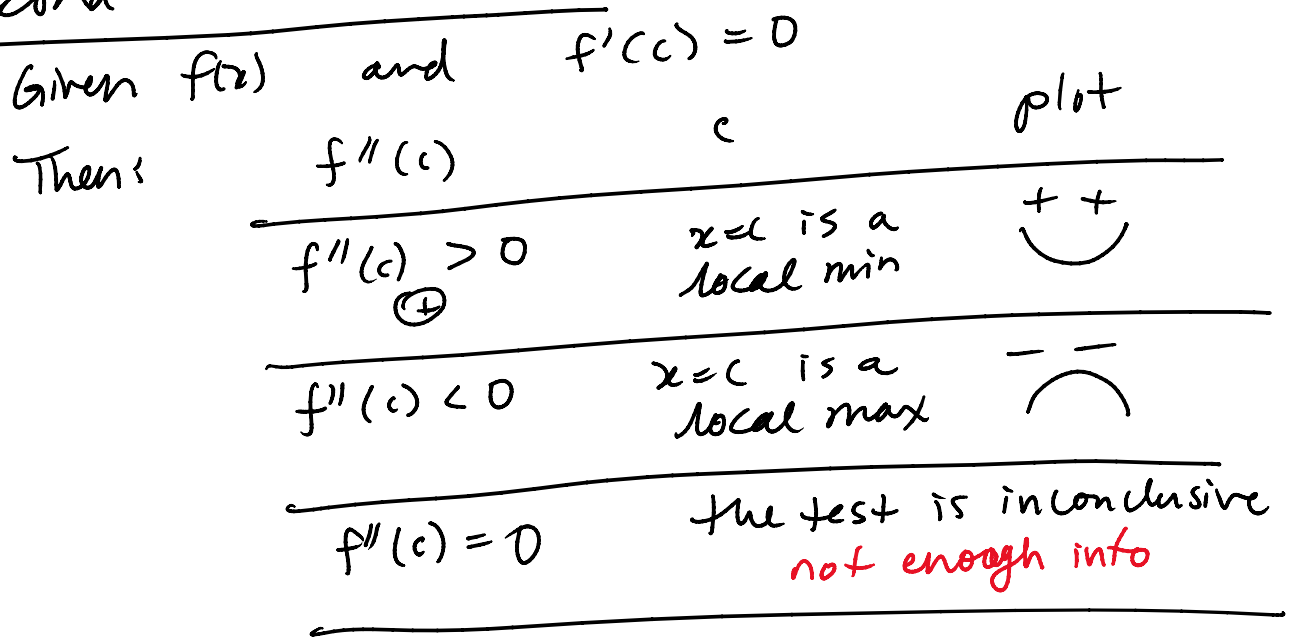 Given f(x) and f'(c) = 0
Then: f''(c) c plot
f''(c) > 0 x=c is a local min + +
(+)
f''(c) < 0 x=c is a local max − −
f''(c) = 0 the test is inconclusive
not enough info